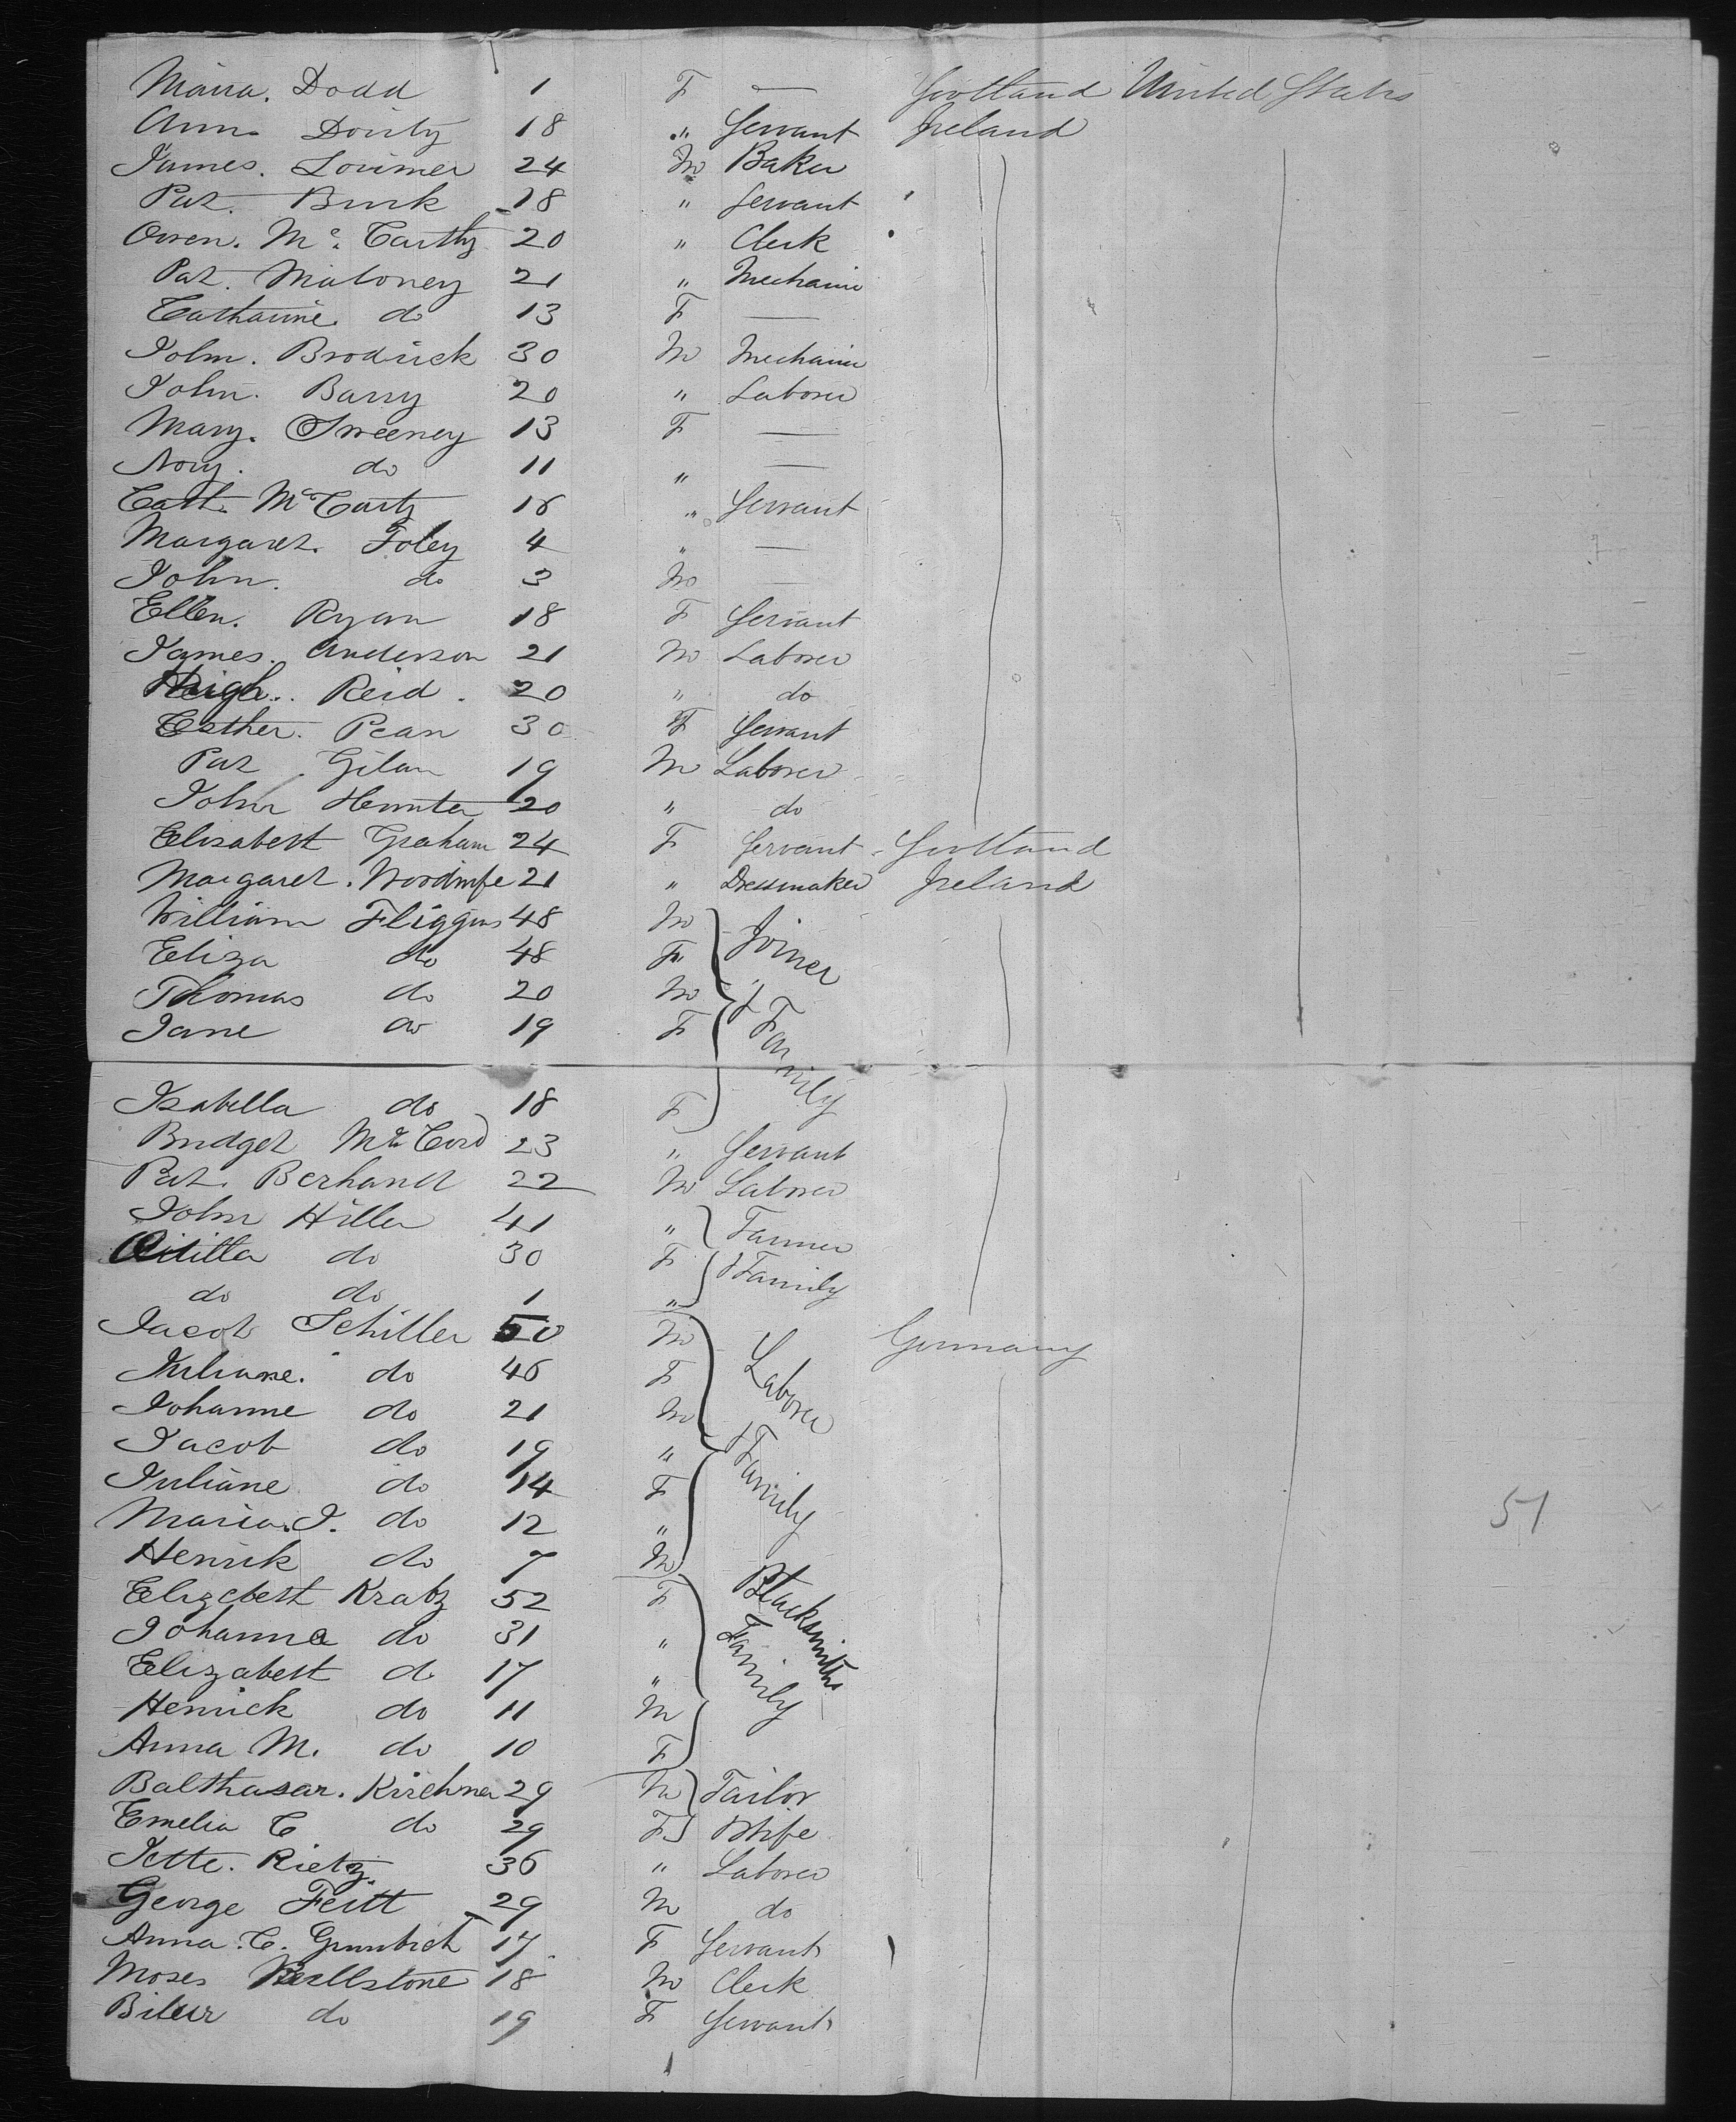 Maria. Dodd 1 F — Scotland United States
Ann. Douty 18 " Servant Ireland
James. Lorimer 24 M Baker
Pat. Burk 18 " Servant
Owen. Mc. Carthy 20 " Clerk
Pat. Maloney 21 " Mechanic
Catharine. do 13 F —
John. Brodrick 30 M Mechanic
John. Barry 20 " Laborer
Mary. Sweeney 13 F —
Nory. do 11 " —
Cath. McCarty 16 " Servant
Margaret. Foley 4 " —
John. do 3 M —
Ellen. Ryan 18 F Servant
James. Anderson 21 M Laborer
Hugh. Reid. 20 " do
Esther. Pean 30 F Servant
Pat Gilan 19 M Laborer
John Hunter 20 " do
Elisabeth Graham 24 F Servant Scotland
Margaret. Woodmfe 21 " Dressmaker Ireland
William Fliggins 48 M Joiner
Eliza do 48 F
Thomas do 20 M &
Jane do 19 F Family
Isabella do 18 F
Bridget Mc Cord 23 " Servant
Pat. Berhand 22 M Laborer
John Hiller 41 " Farmer
Ottilla do 30 F & Family
do do 1 "
Jacob Schiller 50 M Germany
Juliane. do 46 F Laborer
Johanne do 21 M
Jacob do 19 " & Family
Juliane do 14 F
Maria. J. do 12 "
Henrik do 7 M
Elizebeth Kratz 52 F Blacksmiths
Johanna do 31 " Family
Elizabeth do 17 "
Henrick do 11 M
Anna M. do 10 F
Balthasar. Kirchner 29 M Tailor
Emelia C do 29 F Wife
Jette. Rietz 36 " Laborer
George Feitt 29 M do
Anna. C. Grumbich 17 F Servant
Moses Wellstone 18 M Clerk
do 19 F Servant
51